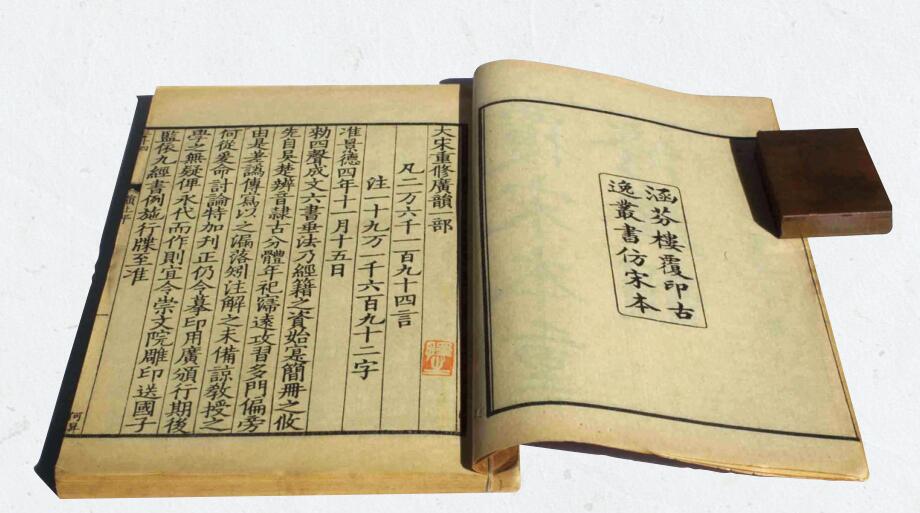 涵芬樓覆印古
逸叢書仿宋本
大宋重修廣韻一部
凡二万六千一百九十四言
注一十九万一千六百九十二字
准景德四年十一月十五日
勑四聲成文六書垂法乃經籍之資始寔簡冊之攸
先自吴楚辨音隷古分體年祀寖遠攻習多門偏旁
由是差譌傳寫以之漏落矧注解之未備諒敎授之
何從爰命討論特加刋正仍令摹印用廣頒行期後
學之無疑俾永代而作則宜令崇文院雕印送國子
監依九經書例施行牒至准